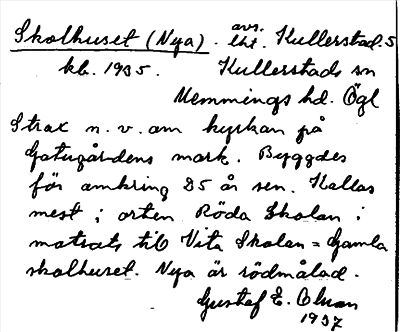 Skolhuset (Nya). avs. lht. Kullerstad. 5
kb. 1935. Kullerstads sn
Memmings hd. Ögl
Strax n. v. om kyrkan på
Gatugårdens mark. Byggdes
för omkring 25 år sen. Kallas
mest i orten Röda Skolan i
motsats till Vita Skolan = Gamla
skolhuset. Nya är rödmålad.
Gustaf E. Olsson
1937